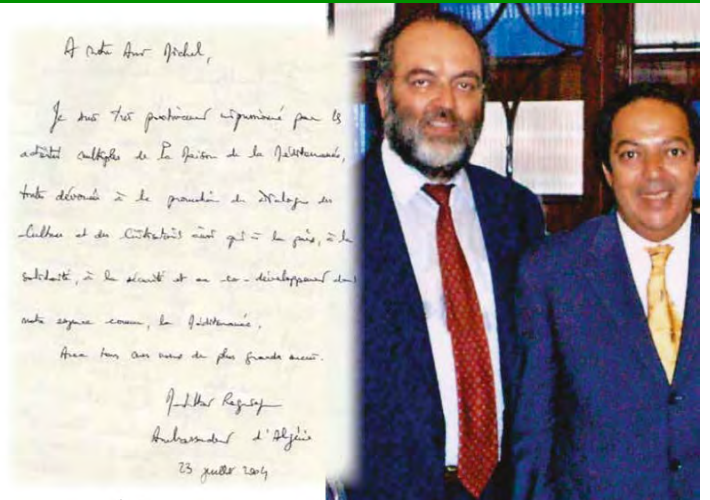 A notre Ami Michel,
Je suis très profondément impressionné par les
activités multiples de La Maison de la Méditerranée,
toute dévouée à la promotion du dialogue des
Cultures et des Civilisations ainsi qu'à la paix, à la
solidarité, à la sécurité et au co-développement dans
notre espace commun, la Méditerranée.
Avec tous vœux de plus grands succès.
Mokhtar Reguieg
Ambassadeur d'Algérie
23 juillet 2004